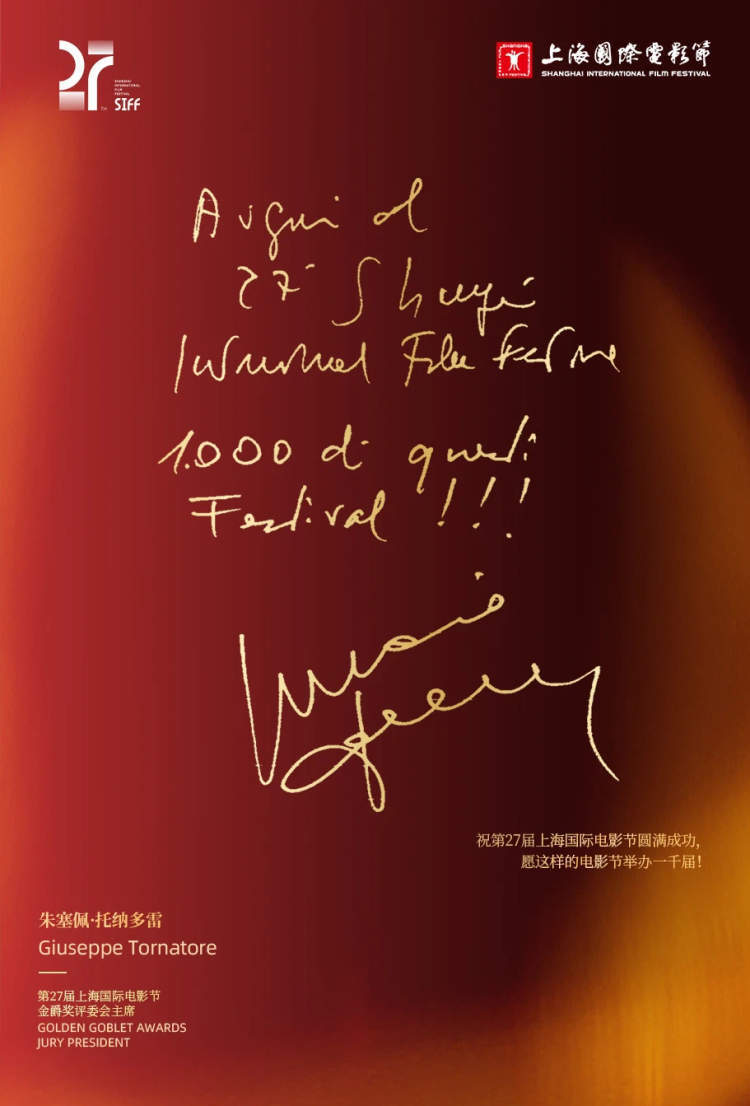 27
SHANGHAI
INTERNATIONAL
FILM
FESTIVAL
SIFF
上海國際電影節
SHANGHAI INTERNATIONAL FILM FESTIVAL
Auguri al
27°
Film
1.000 di questi
Festival !!!
祝第27届上海国际电影节圆满成功,
愿这样的电影节举办一千届!
朱塞佩·托纳多雷
Giuseppe Tornatore
第27届上海国际电影节
金爵奖评委会主席
GOLDEN GOBLET AWARDS
JURY PRESIDENT